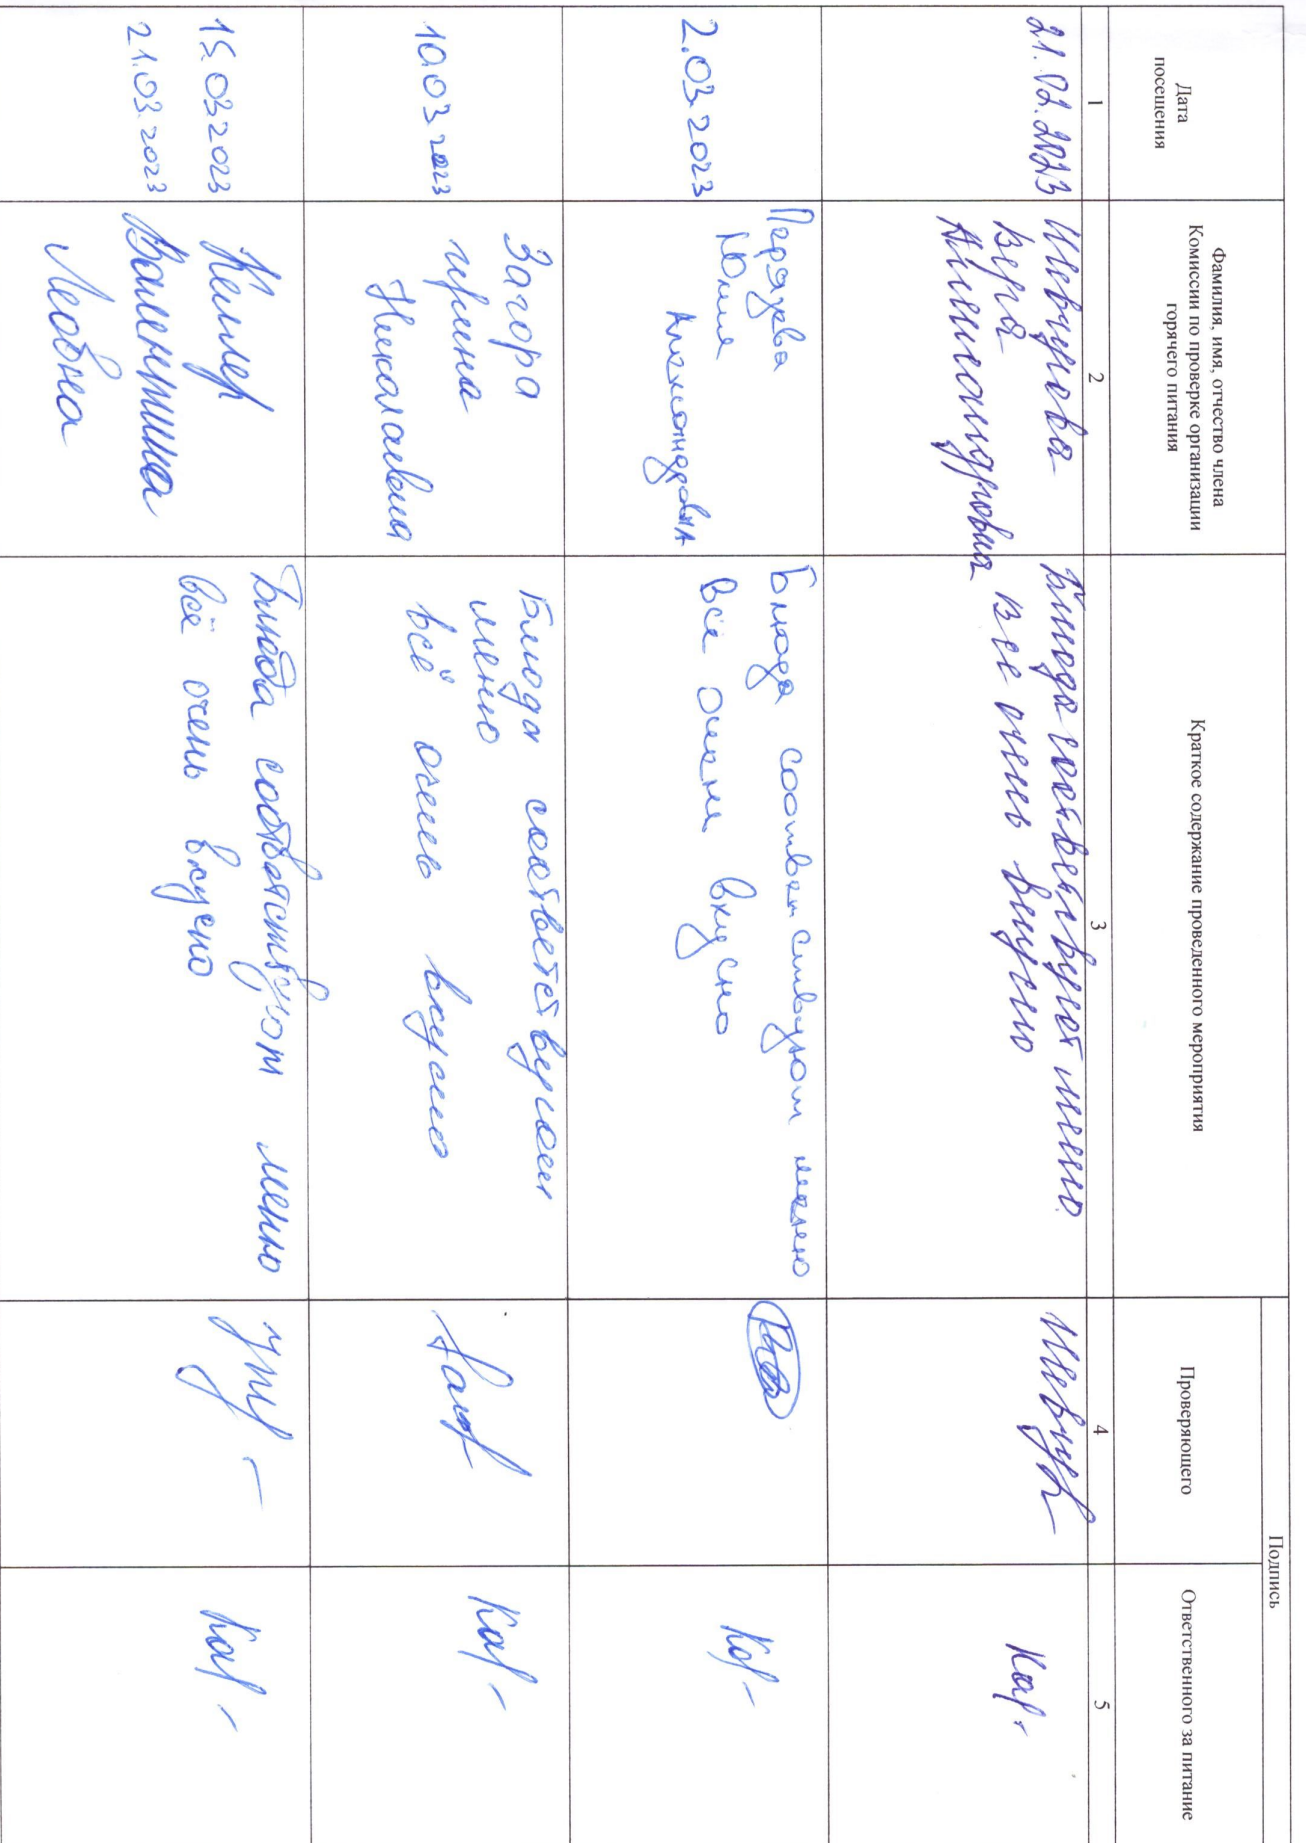 Дата
посещения
Фамилия, имя, отчество члена
Комиссии по проверке организации
горячего питания
Краткое содержание проведенного мероприятия
Подпись
Проверяющего
Ответственного за питание
1
2
3
4
5
21.02.2023
Вера
Александровна
Блюда соответствуют меню.
Все очень вкусно
Кар-
2.03.2023
Юлия
Александровна
Блюда соответствуют меню
Все очень вкусно
Кар-
10.03.2023
Загора
Ирина
Николаевна
Блюда соответствуют
меню
Всё очень вкусно
Кар-
15.03.2023
21.03.2023
Келлер
Валентина
Леовна
Блюда соответствуют меню
всё очень вкусно
Кар-